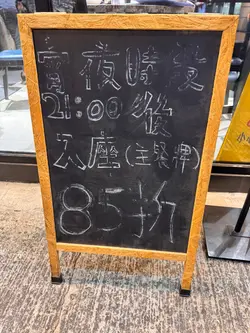 宵夜時段
21:00後
入座(主餐牌)
85折